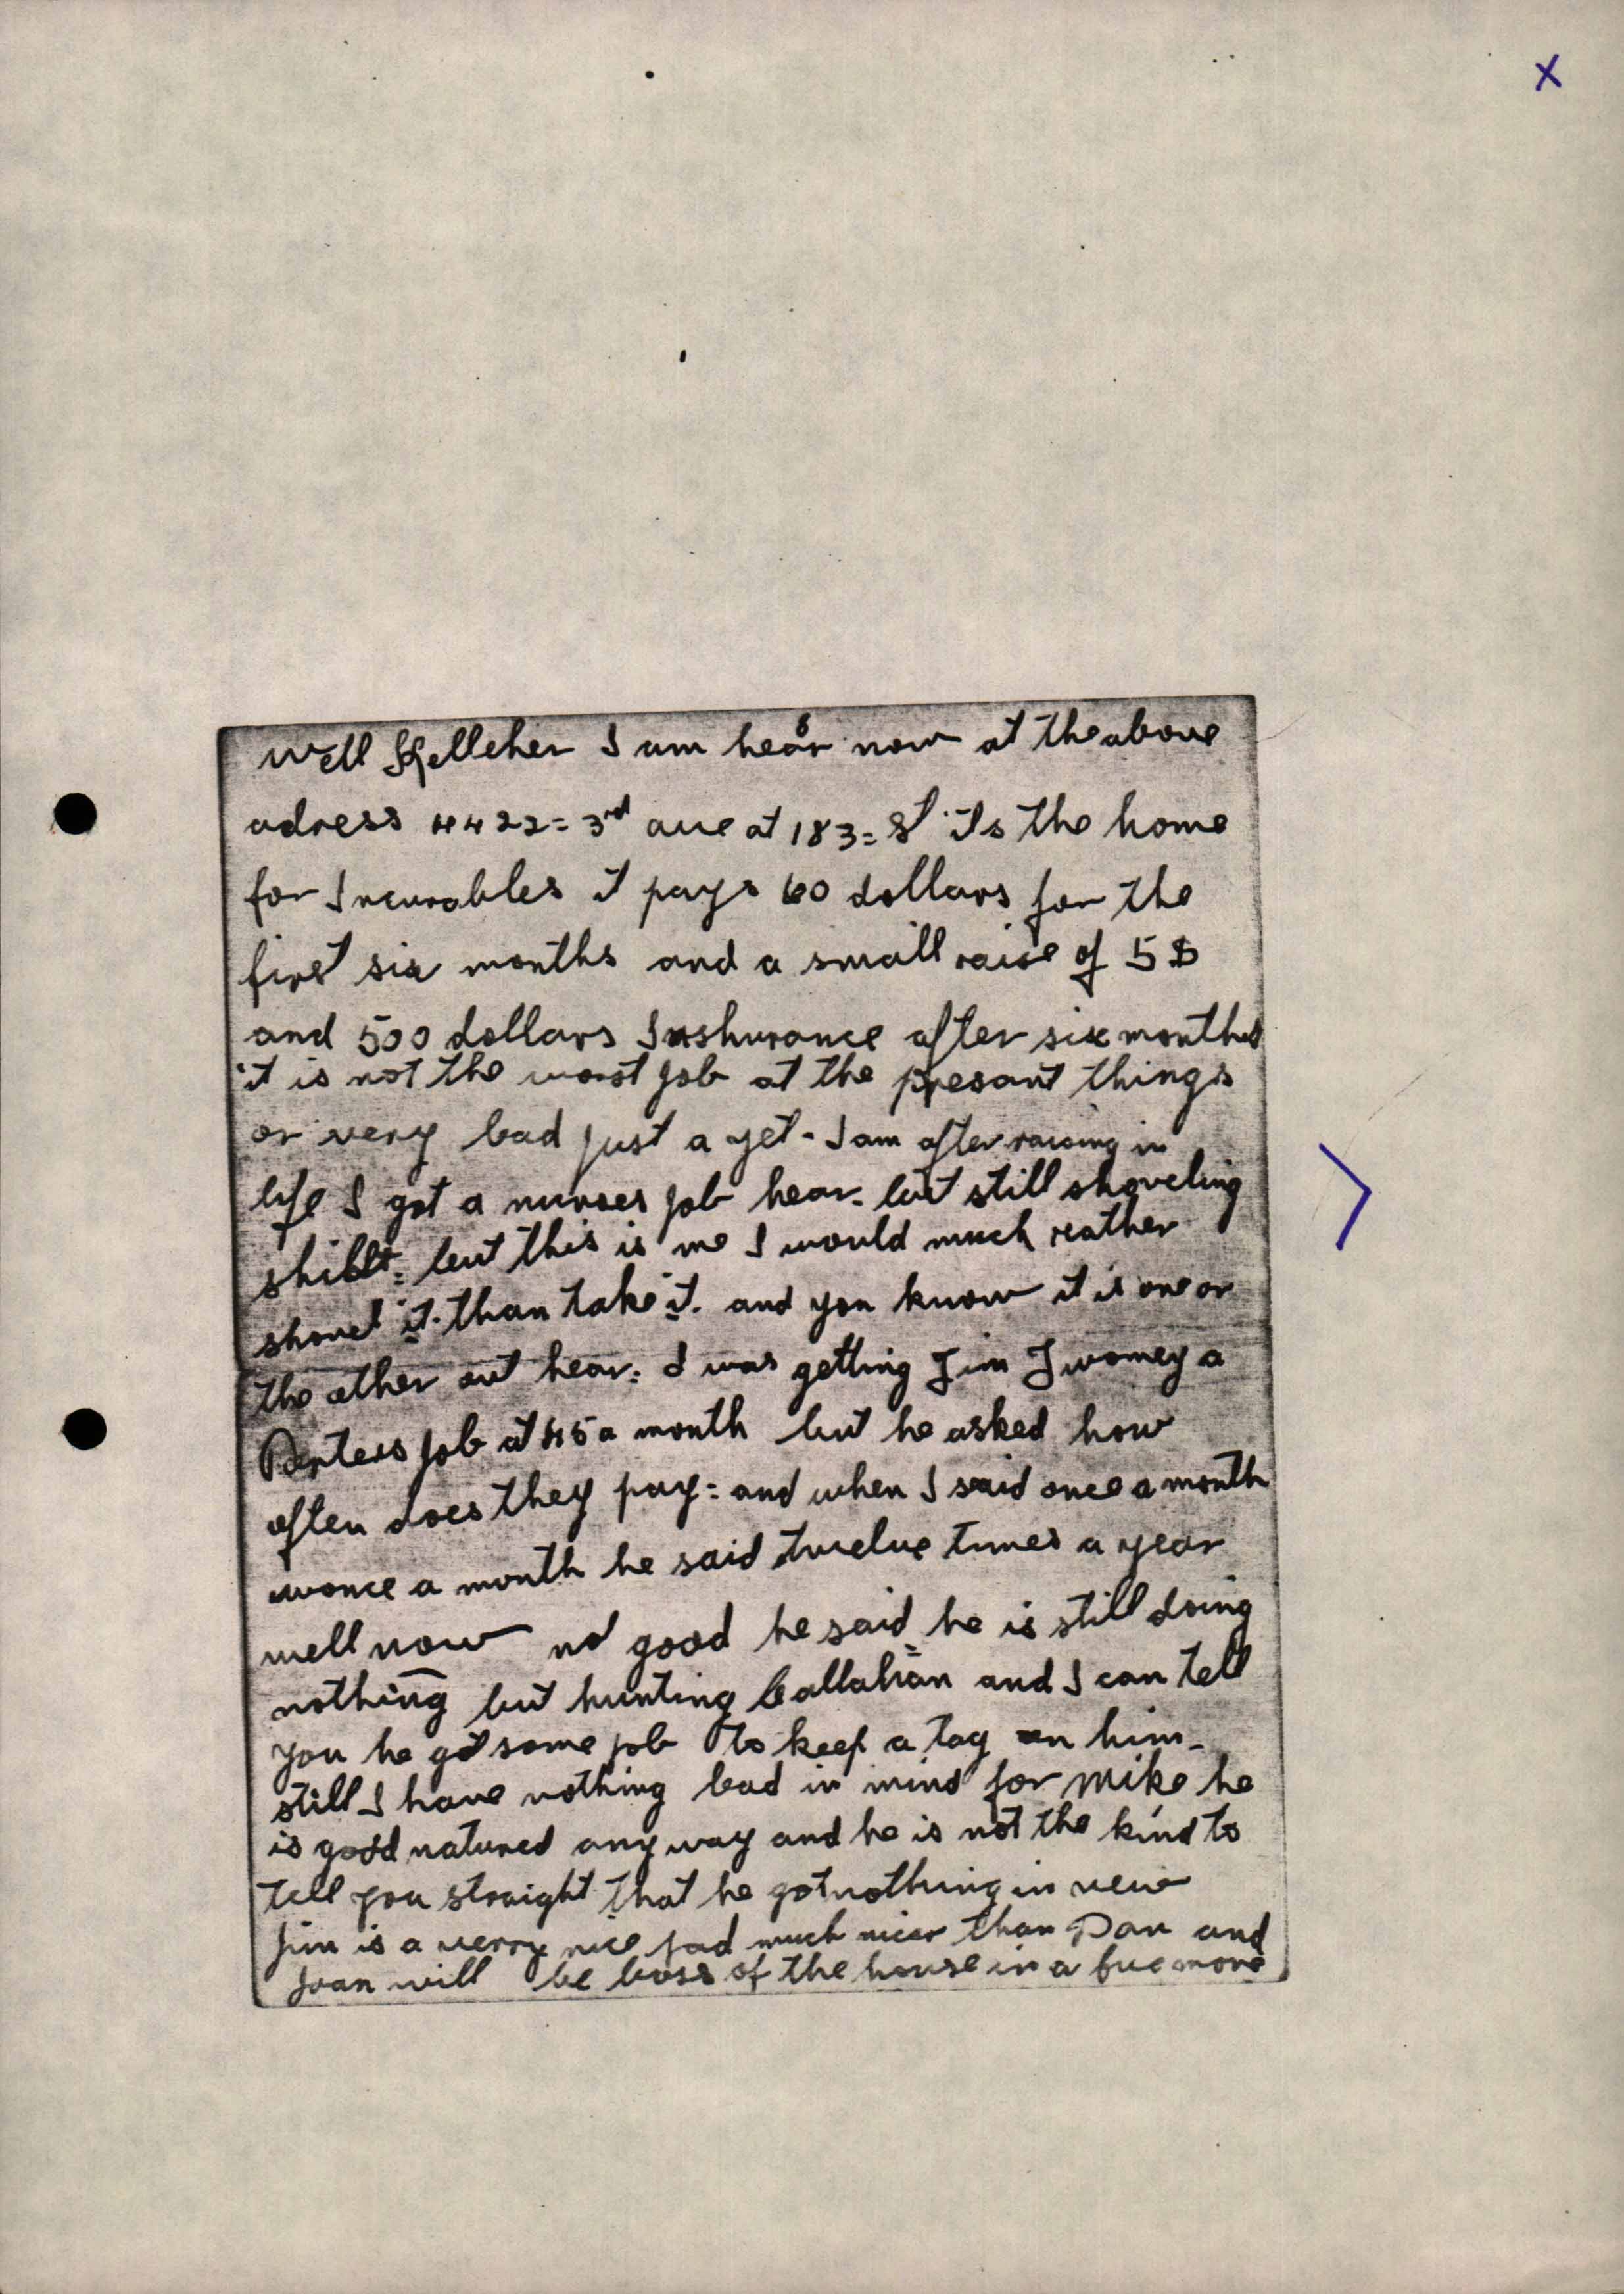 x
Well Kelleher I am hear now at the above
adress 4422 = 3rd ave at 183 = St its the home
for Incurables it pays 60 dollars for the
first six months and a small raise of 5$
and 500 dollars Inshurance after six months
it is not the worst job at the presant things
or very bad just a yet - I am after raising in
life I got a nurses job hear - but still shoveling
shitt = but this is me I would much reather
shovel it - than take it. and you know it is one or
the other out hear = I was getting Jim Twomey a
Porters job at 45 a month but he asked how
often does they pay = and when I said once a month
wonce a month he said twelve times a year
well now no good he said he is still doing
nothing but hunting Callahan and I can tell
you he got some job to keep a tag on him -
still I have nothing bad in mind for Mike he
is good natured any way and he is not the kind to
tell you straight that he got nothing in veiw
Jim is a verry nice lad much nicer than Dan and
Joan will be boss of the house in a fue more